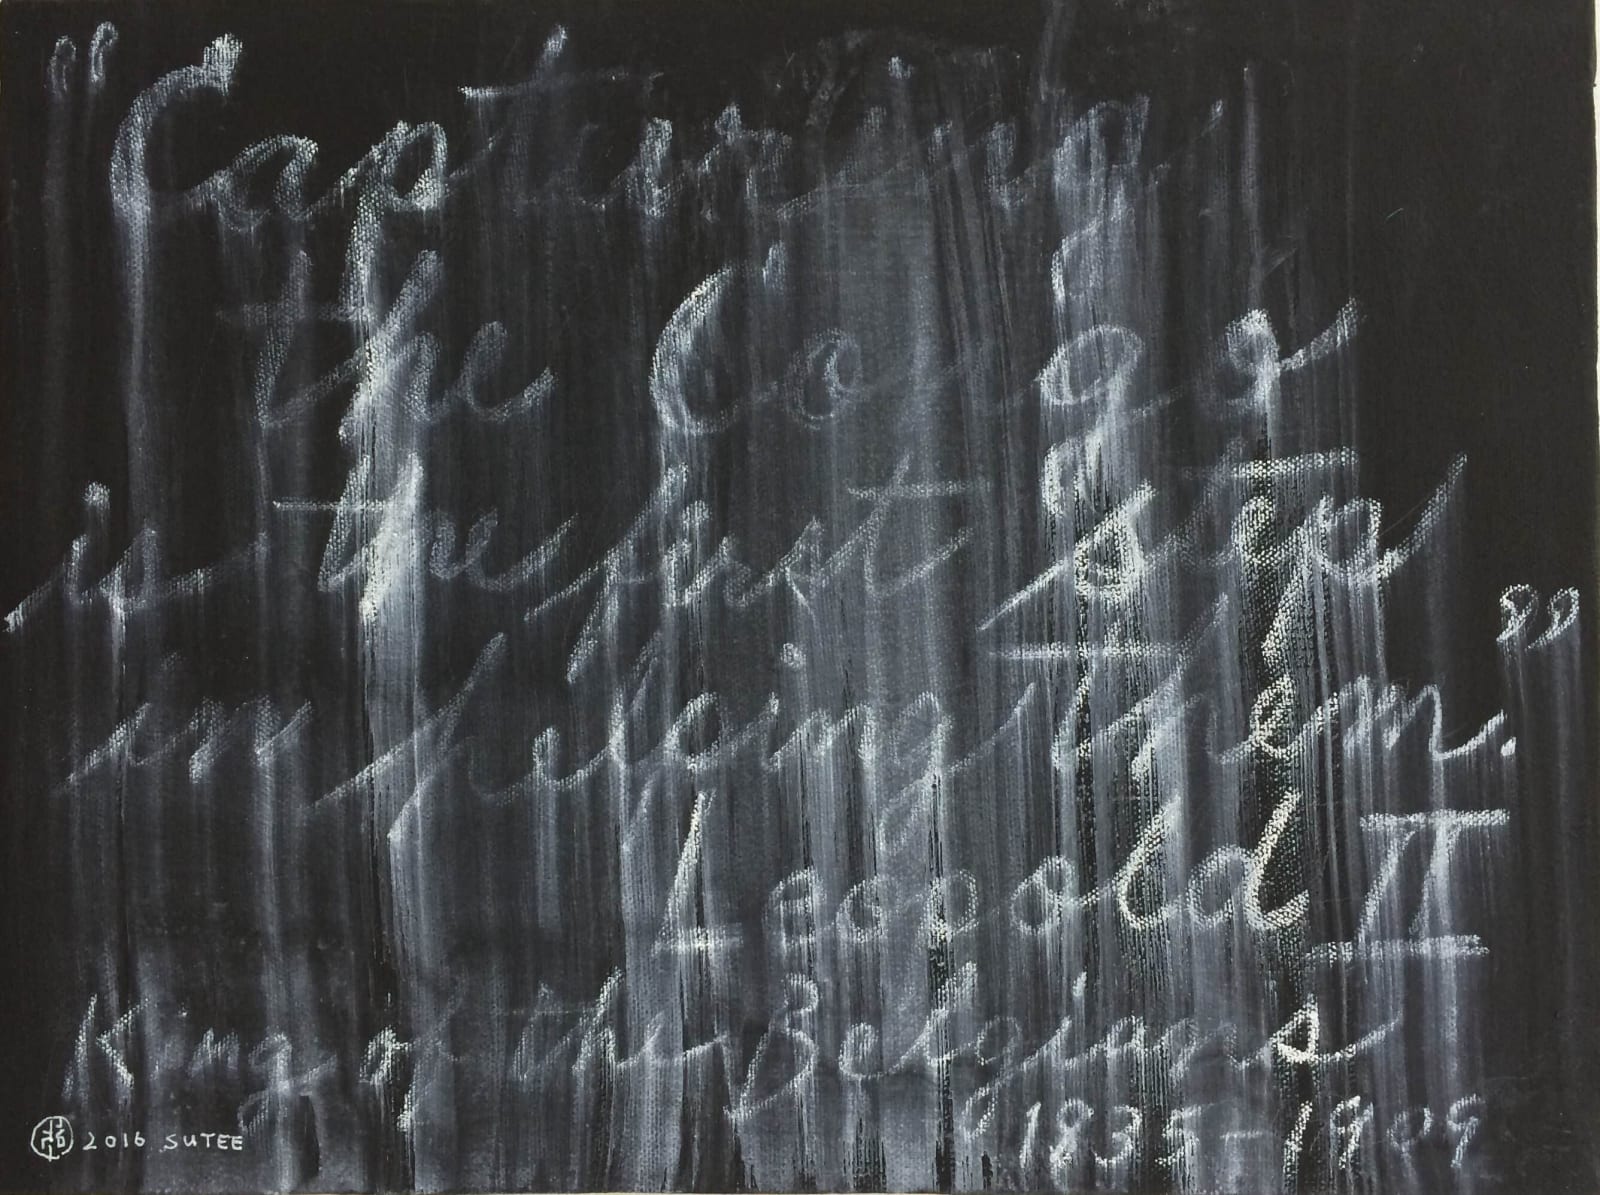 "Capturing
the Congo
is the first step
in helping them."
Leopold II
King of the Belgians
1835-1909
2016 SUTEE